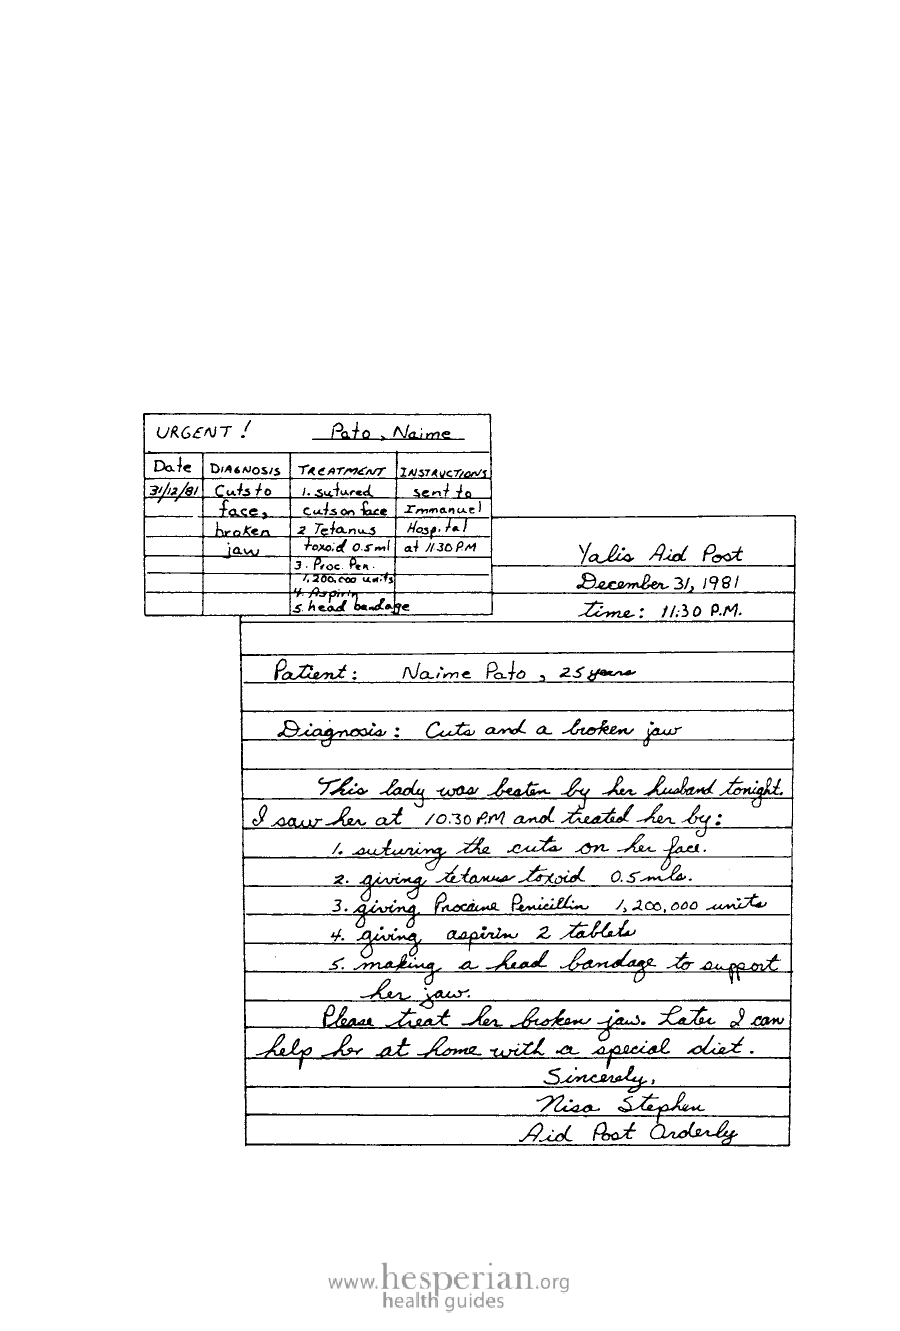 URGENT! Pato, Naime
Date DIAGNOSIS TREATMENT INSTRUCTIONS
31/12/81 Cuts to 1. sutured sent to
face, cuts on face Immanuel
broken 2 Tetanus Hospital
jaw toxoid 0.5ml at 11:30 PM
3. Proc. Pen.
1,200,000 units
4. Aspirin
5. head bandage
Yalis Aid Post
December 31, 1981
time: 11:30 P.M.
Patient: Naime Pato, 25 years
Diagnosis: Cuts and a broken jaw
This lady was beaten by her husband tonight.
I saw her at 10:30 P.M and treated her by:
1. suturing the cuts on her face.
2. giving tetanus toxoid 0.5 mls.
3. giving Procaine Penicillin 1,200,000 units
4. giving aspirin 2 tablets
5. making a head bandage to support
her jaw.
Please treat her broken jaw. Later I can
help her at home with a special diet.
Sincerely,
Nisa Stephen
Aid Post Orderly
www.hesperian.org
health guides